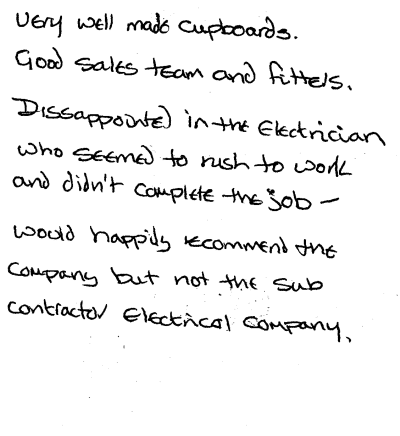 Very well made cupboards.
Good sales team and fitters.
Dissappointed in the Electrician
who seemed to rush to work
and didn't complete the job –
would happily recommend the
company but not the sub
contractor Electrical company.